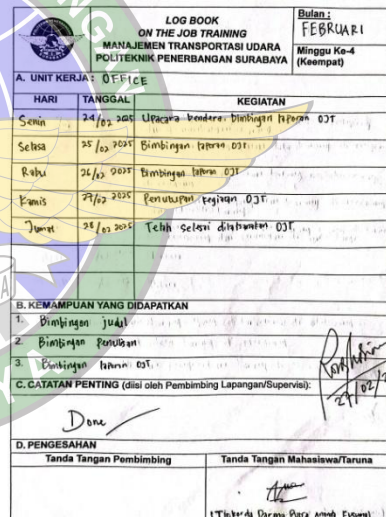 LOG BOOK
ON THE JOB TRAINING
MANAJEMEN TRANSPORTASI UDARA
POLITEKNIK PENERBANGAN SURABAYA
Bulan :
FEBRUARI
Minggu Ke-4
(Keempat)
A. UNIT KERJA : OFFICE
HARI TANGGAL KEGIATAN
Senin 24/02 2025 Upacara bendera, bimbingan laporan OJT
Selasa 25/02 2025 Bimbingan laporan OJT
Rabu 26/02 2025 Bimbingan laporan OJT
Kamis 27/02 2025 Penutupan kegiatan OJT
Jumat 28/02 2025 Telah selesai dilaksanakan OJT
B. KEMAMPUAN YANG DIDAPATKAN
1. Bimbingan judul
2. Bimbingan penulisan
3. Bimbingan laporan OJT
C. CATATAN PENTING (diisi oleh Pembimbing Lapangan/Supervisi):
Done
27/02/2
D. PENGESAHAN
Tanda Tangan Pembimbing Tanda Tangan Mahasiswa/Taruna